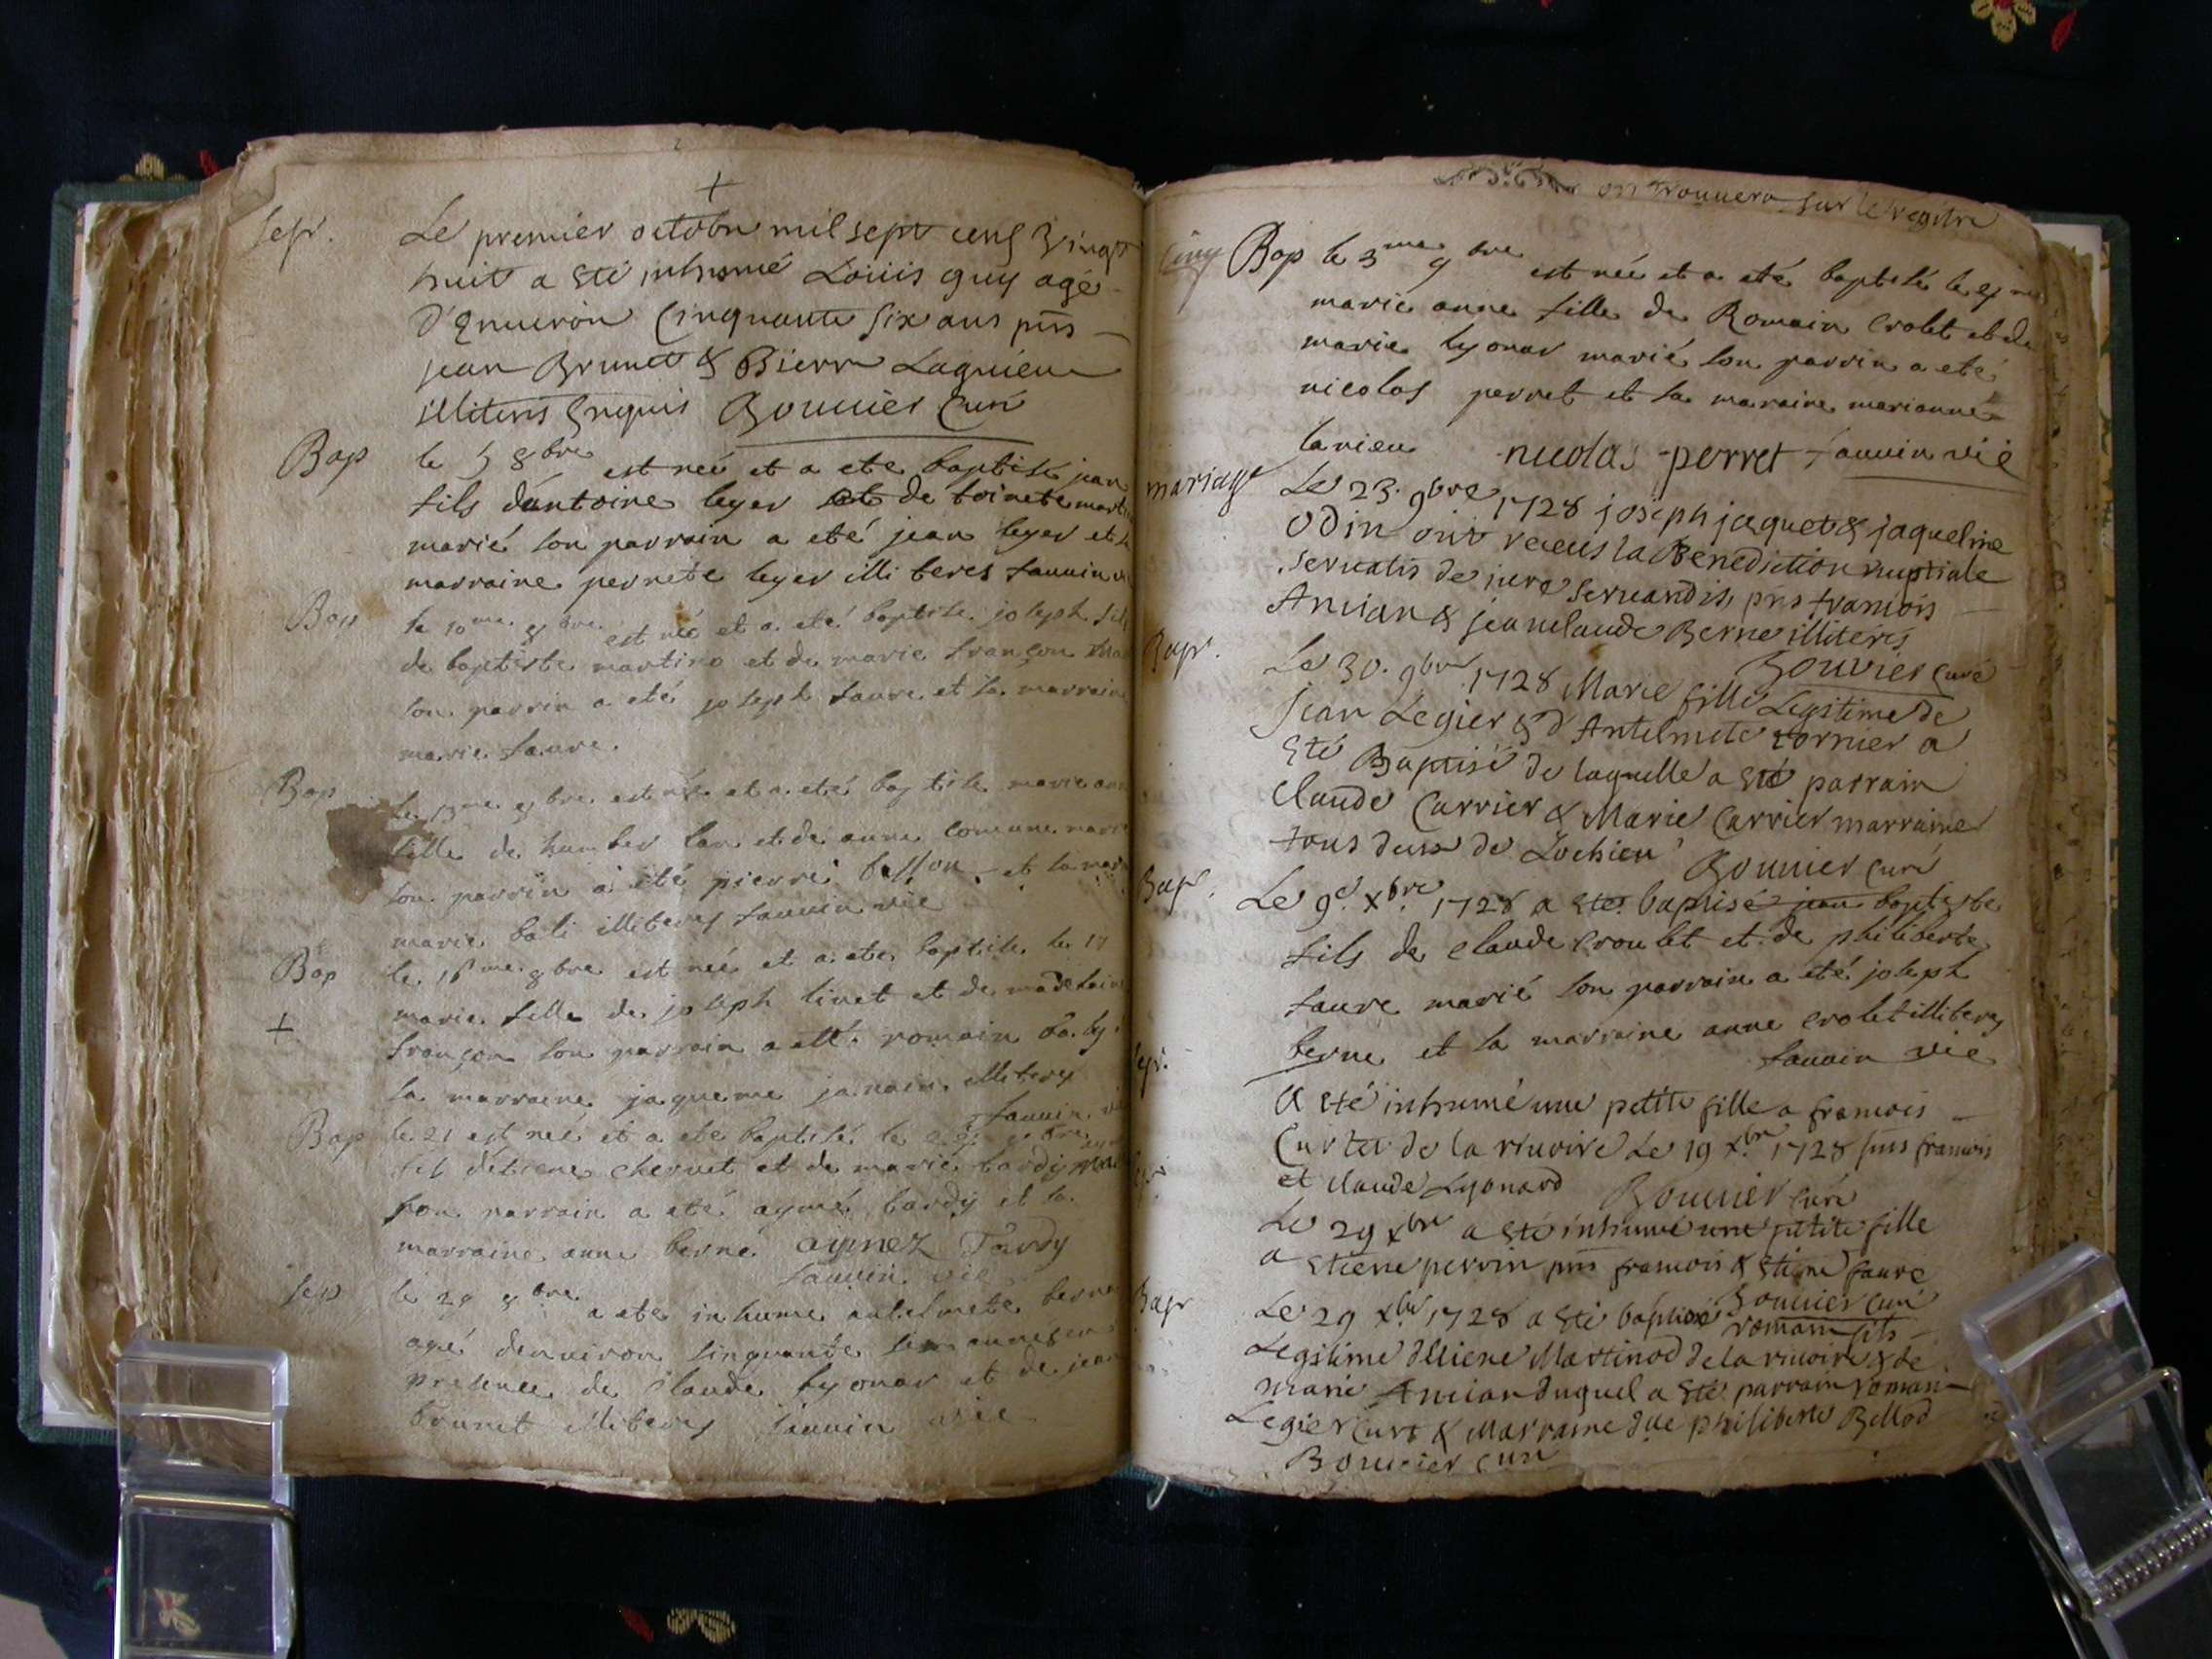 +
Sepr.
Le premier octobre mil sept cens vingt
huit a eté inhumé Loüis guy agé
d'Enuiron Cinquante six ans pns
jean Brunet & Pierre Laguieu
illiteris Enquis Bouuier Curé
Bap
le 5 8bre est neé et a ete baptisé jean
fils dantoine leger et de toinete
marié son parrain a eté jean leger et
marraine pernete leger illi teres sauuin
Bap
le 10me 8bre est né et a eté baptise joseph fils
de baptiste martino et de marie françon
son parrin a eté joseph faure et la marraine
marie faure.
Bap
le 13me 8bre est née et a eté baptise marie
fille de humber et de anne
son parrin a eté pierre besson et la
marie illiteres sauuin vié
Bap
le 16me 8bre est neé et a ete baptise le 17
marie fille de joseph linet et de
+
françon son parrain a romain
la marraine jaqueme janain illiteres
sauuin
Bap
le 21 est neé et a ete baptisé le 8bre
fils détiene cheruet et de marie tardy
son parrain a eté aymé tardy et la
marraine anne berne aymez Tardy
sauuin vié
Sep
le 28 8bre a ete inhume antelmete berne
agé denuiron sinquante
presence de Claude lyonar et de jean
brunet illiteres sauuin vié
on trouuera sur le regitre
Bap le 3me 9bre est neé et a eté baptisé le
marie anne fille de Romain Crolet et de
marie lyonar marié son parrin a eté
nicolas perret et la maraine marianne
larieu nicolas perret sauuin vié
mariage
Le 23. 9bre 1728 joseph jaquet & jaqueline
Odin ont receus la Benediction nuptiale
seruatis de jure seruandis, pns francois
Ancian & jeanclaude Berne illiterés
Bouvier Curé
Bapt.
Le 30. 9bre 1728 Marie fille Legitime de
jean Legier & d'Antelmete Cornier a
eté Baptisé de laquelle a eté parrain
Claude Carrier & Marie Carrier marraine
tous deux de Lochieu Bouuier Curé
Bapt.
Le 9e. xbre. 1728 a eté baptisé jean baptiste
fils de claude Croulet et de philiberte
faure marié son parrain a eté joseph
berne et la marraine anne crolet illiteres
sauuin vié
A eté inhumé une petite fille a francois
Curtet de la riuoire Le 19 xbre 1728 pns francois
et claude Lyonard Bouuier Curé
Le 29 xbre a eté inhumé une petite fille
a Etiene perrin pns francois & Etiene faure
Bouuier Curé
Bapt
Le 29 xbre 1728 a eté baptisé romain fils
Legitime dEtiene Martinod de la riuoire & de
marie Ancian duquel a eté parrain roman
Legier Curt & Marraine philiberte Bellod
Bouuier Curé